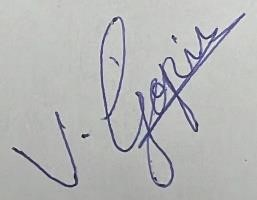 V. Gopi